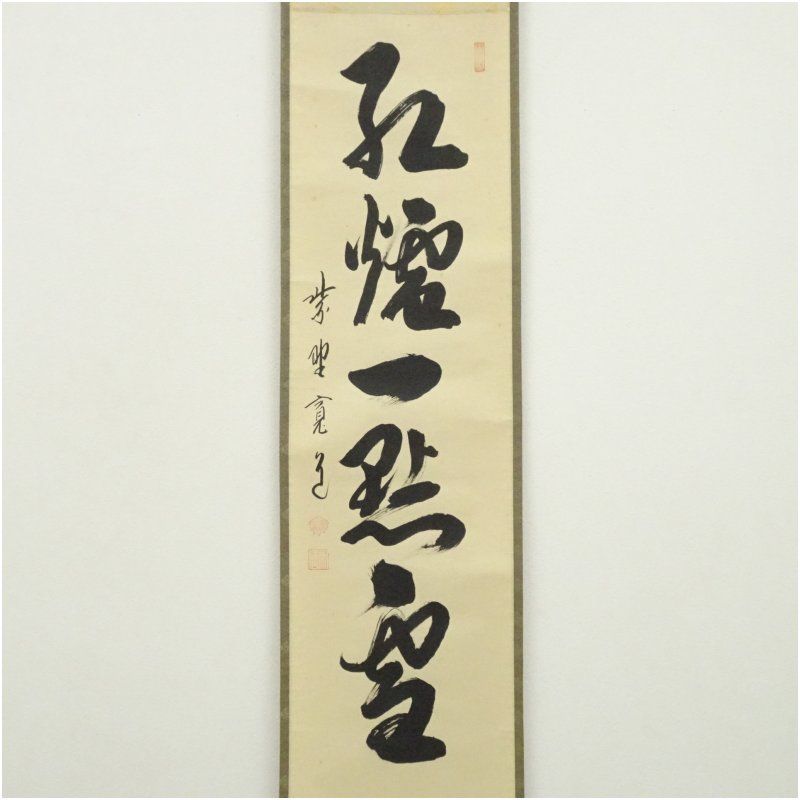 紅爐一點雪
紫野寛道